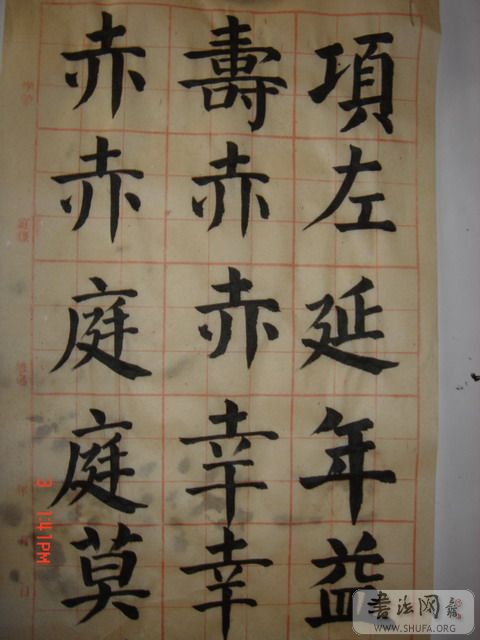 項左延年益
壽赤赤幸幸
赤赤庭庭莫
3 1:41PM
書法网
WWW.SHUFA.ORG